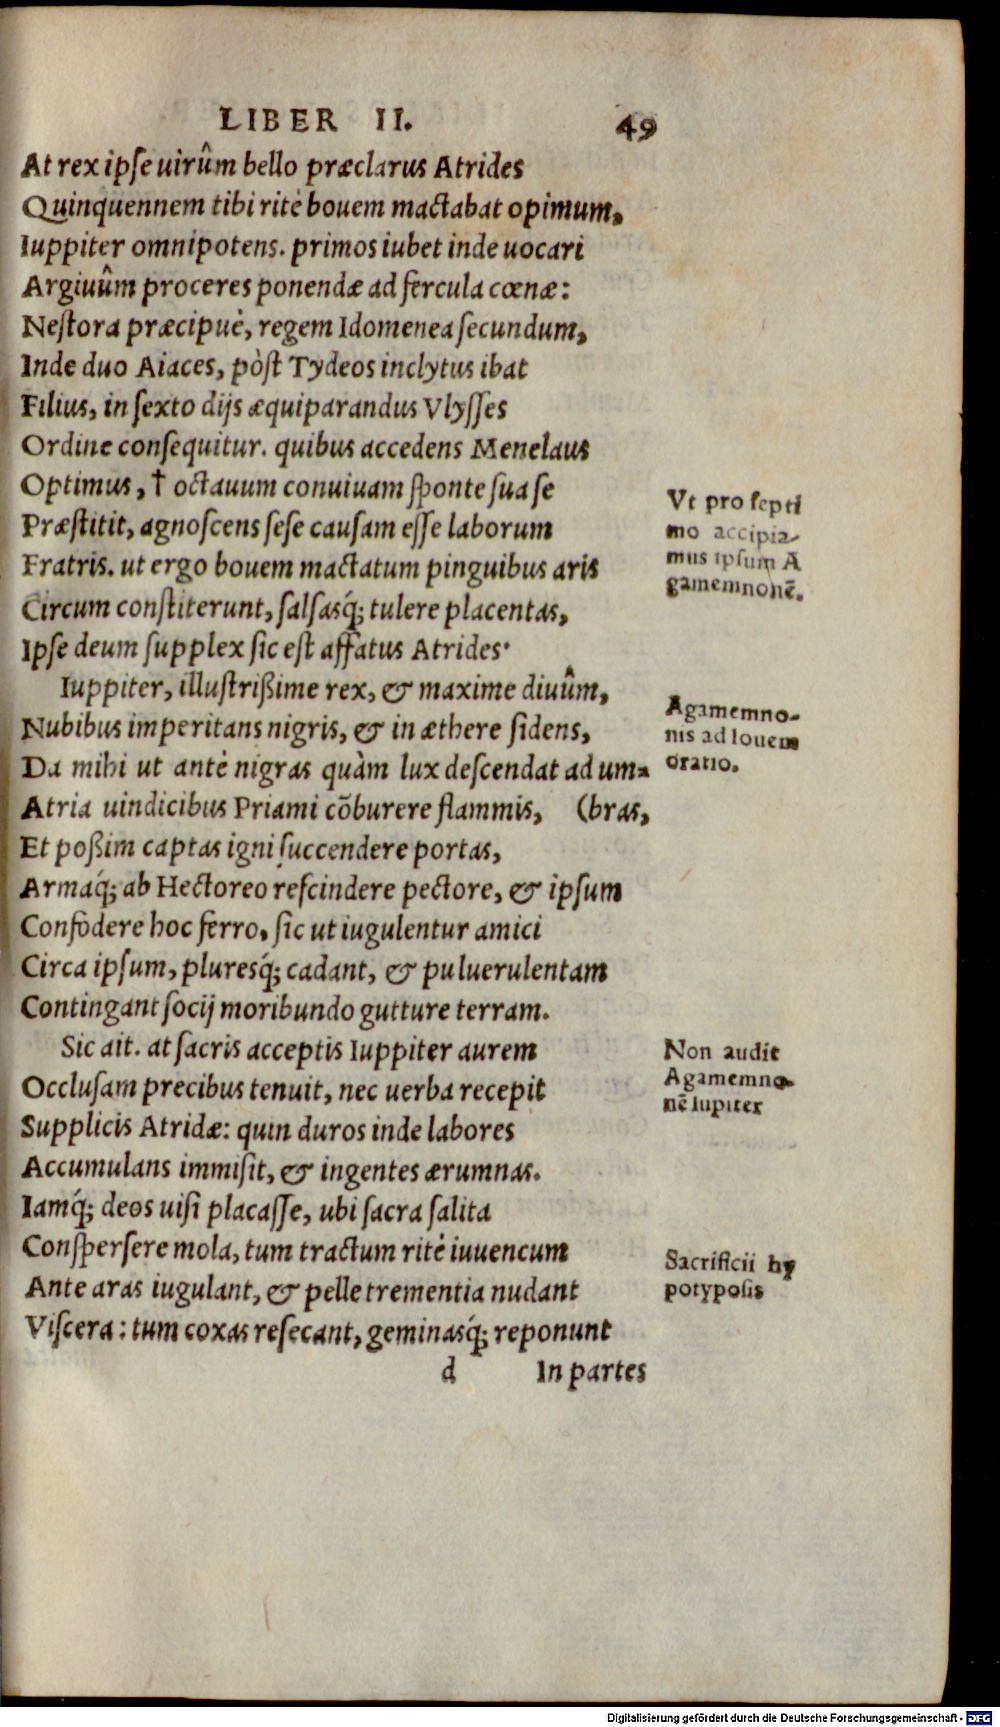 LIBER II. 49
At rex ipſe uirûm bello præclarus Atrides
Quinquennem tibi ritè bouem mactabat opimum,
Iuppiter omnipotens. primos iubet inde uocari
Argiuûm proceres ponendæ ad fercula cœnæ:
Neſtora præcipuè, regem Idomenea ſecundum,
Inde duo Aiaces, pòſt Tydeos inclytus ibat
Filius, in ſexto dijs æquiparandus Vlyſſes
Ordine conſequitur. quibus accedens Menelaus
Optimus, † octauum conuiuam ſponte ſua ſe
Præſtitit, agnoſcens ſeſe cauſam eſſe laborum
Fratris. ut ergo bouem mactatum pinguibus aris
Circum conſtiterunt, ſalſasq́; tulere placentas,
Ipſe deum ſupplex ſic eſt affatus Atrides·
Iuppiter, illuſtrißime rex, & maxime diuûm,
Nubibus imperitans nigris, & in æthere ſidens,
Da mihi ut antè nigras quàm lux deſcendat ad um-
Atria uindicibus Priami cõburere flammis, (bras,
Et poßim captas igni ſuccendere portas,
Armaq́; ab Hectoreo reſcindere pectore, & ipſum
Confodere hoc ferro, ſic ut iugulentur amici
Circa ipſum, pluresq́; cadant, & puluerulentam
Contingant ſocij moribundo gutture terram.
Sic ait. at ſacris acceptis Iuppiter aurem
Occluſam precibus tenuit, nec uerba recepit
Supplicis Atridæ: quin duros inde labores
Accumulans immiſit, & ingentes ærumnas.
Iamq́; deos uiſi placaſſe, ubi ſacra ſalita
Conſperſere mola, tum tractum ritè iuuencum
Ante aras iugulant, & pelle trementia nudant
Viſcera: tum coxas reſecant, geminasq́; reponunt
d In partes
Vt pro ſepti
mo accipia-
mus ipſum A
gamemnonē.
Agamemno-
nis ad Iouem
oratio.
Non audit
Agamemno-
nē Iupiter
Sacrificii hy
potypoſis
Digitalisierung gefördert durch die Deutsche Forschungsgemeinschaft - DFG